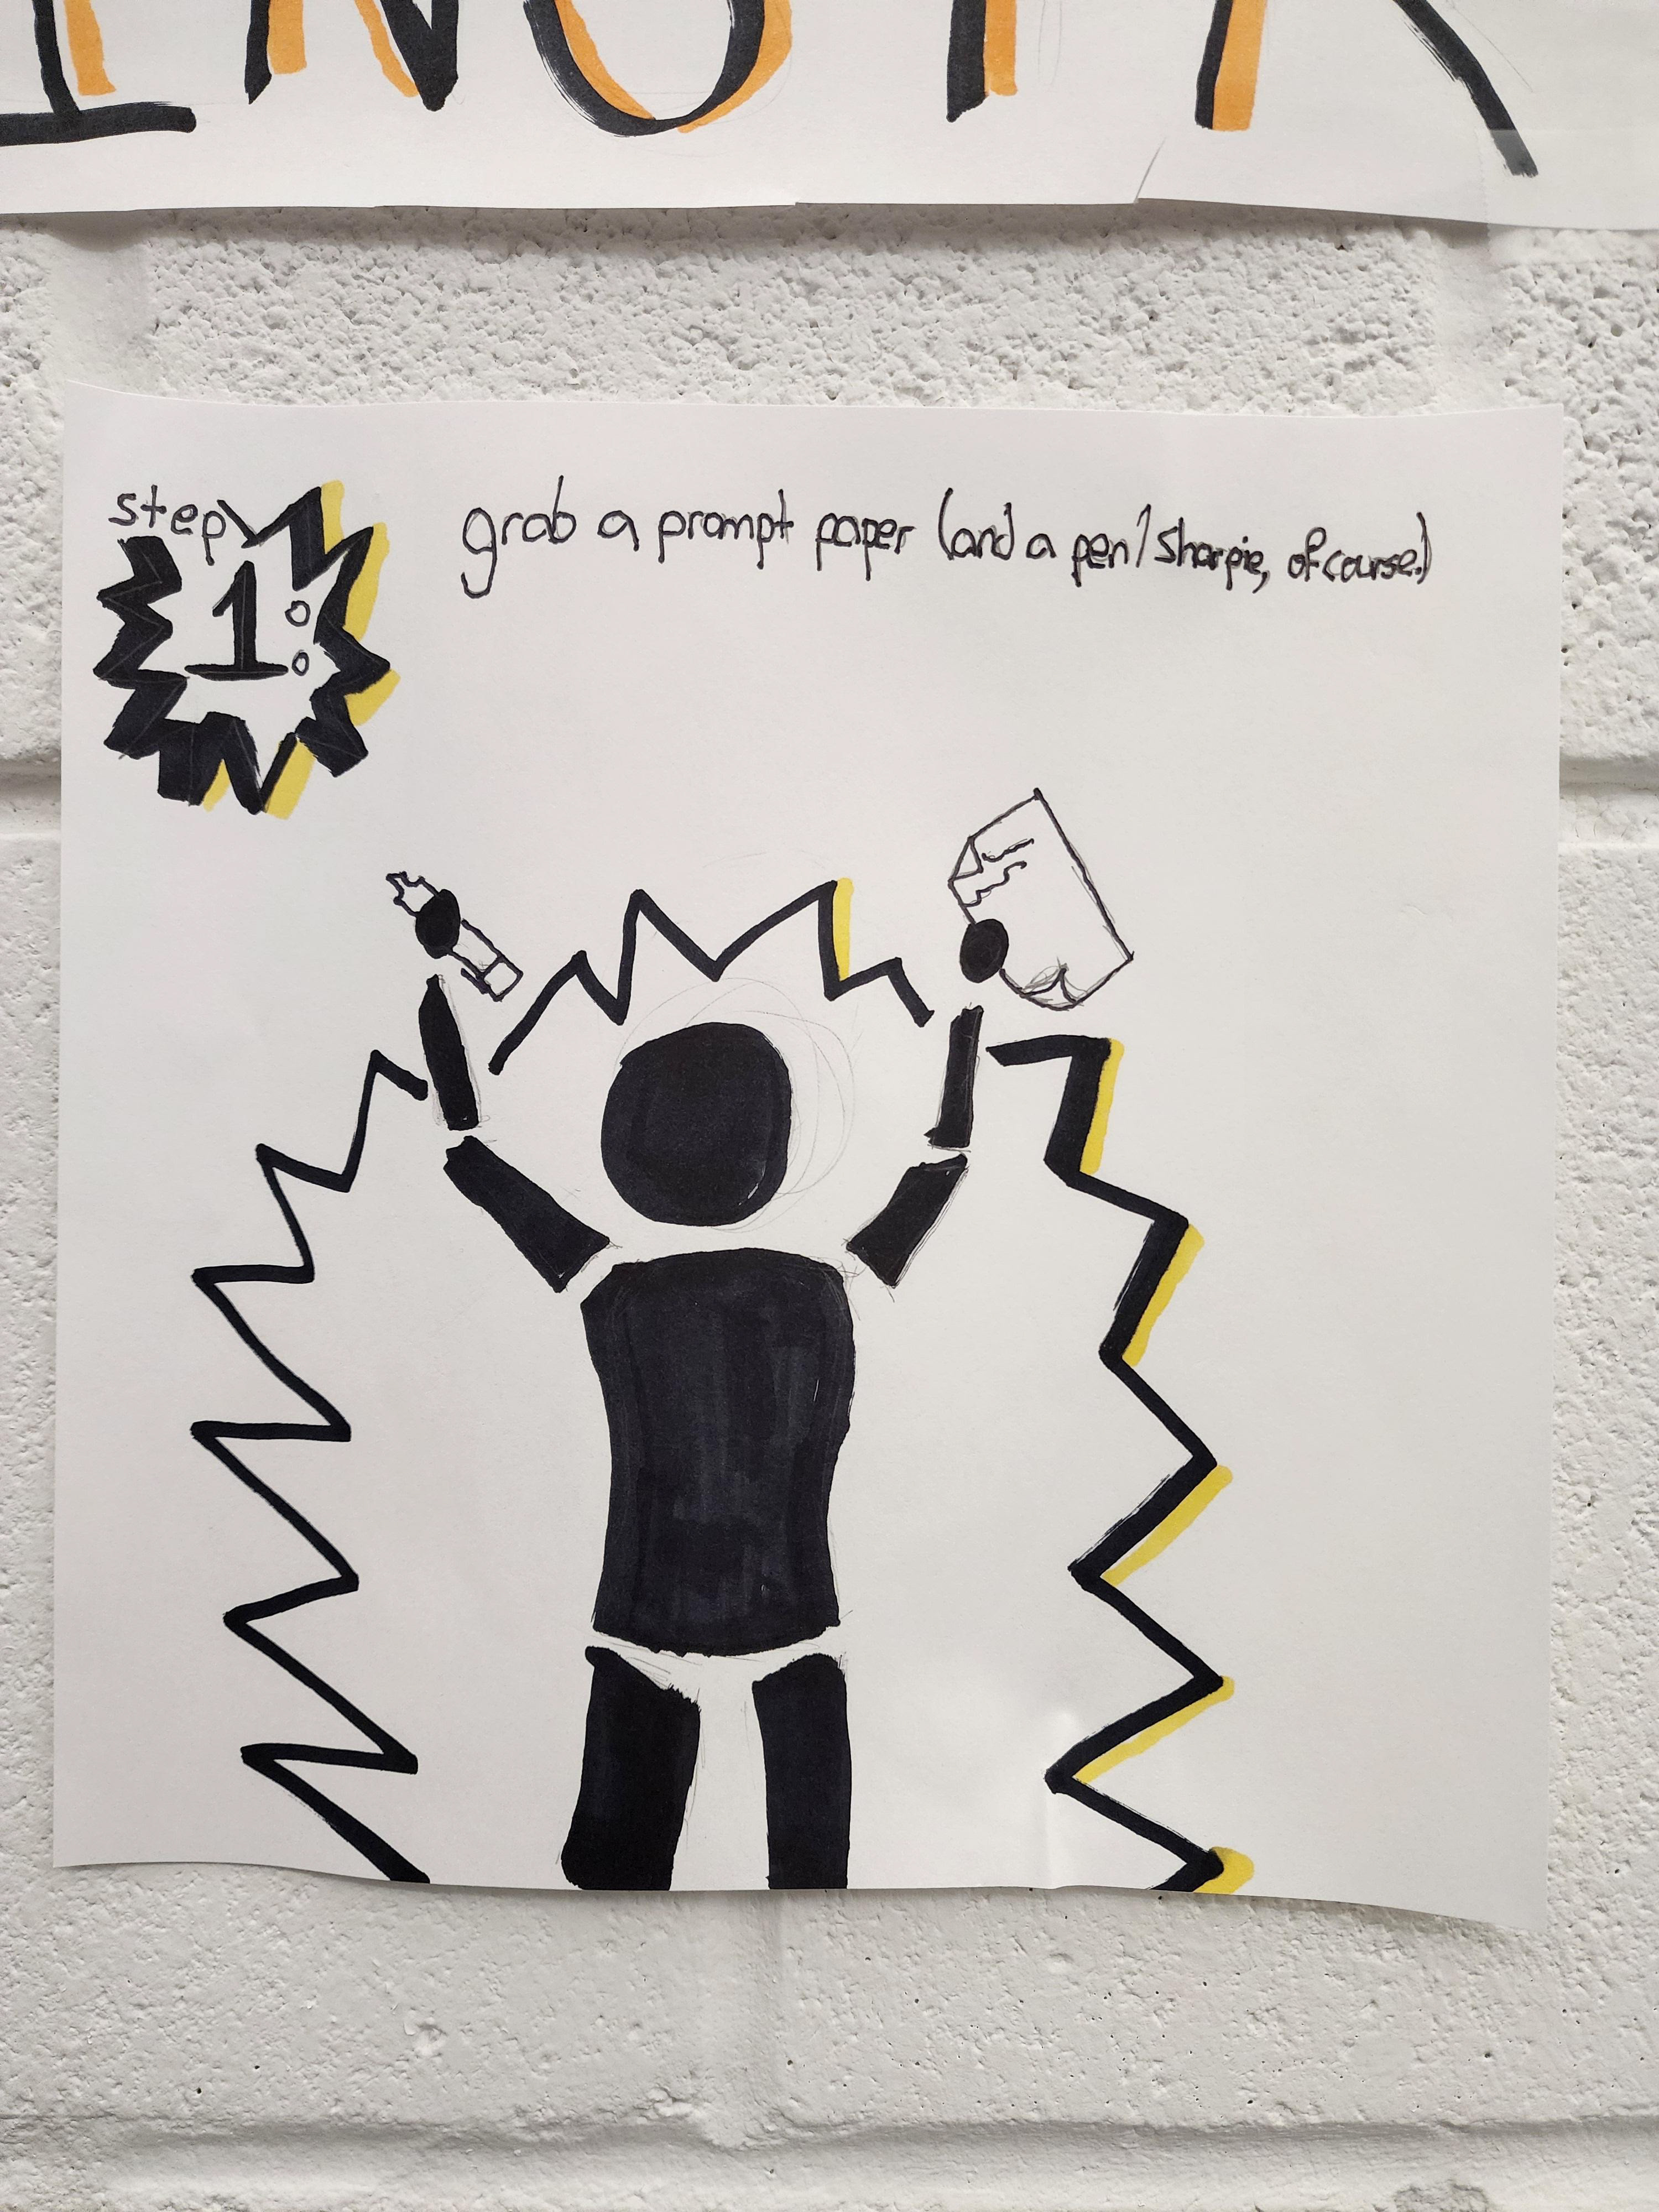 step
1:
grab a prompt paper (and a pen/sharpie, of course.)